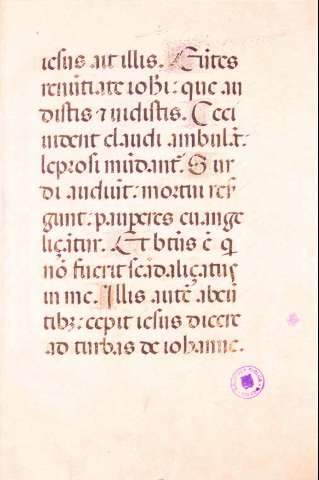 iesus ait illis. Eūtes
renūtiate iohi: que au
distis ⁊ uidistis. Ceci
uident claudi ambulāt:
leprosi mūdant̄. Sur
di audiūt: mortui res
gunt: pauperes euange
liçātur. Et btūs ē q
nō fuerit scādaliçatus
in me. Illis autē abeū
tibꝫ: cepit iesus dicere
ad turbas de iohanne.